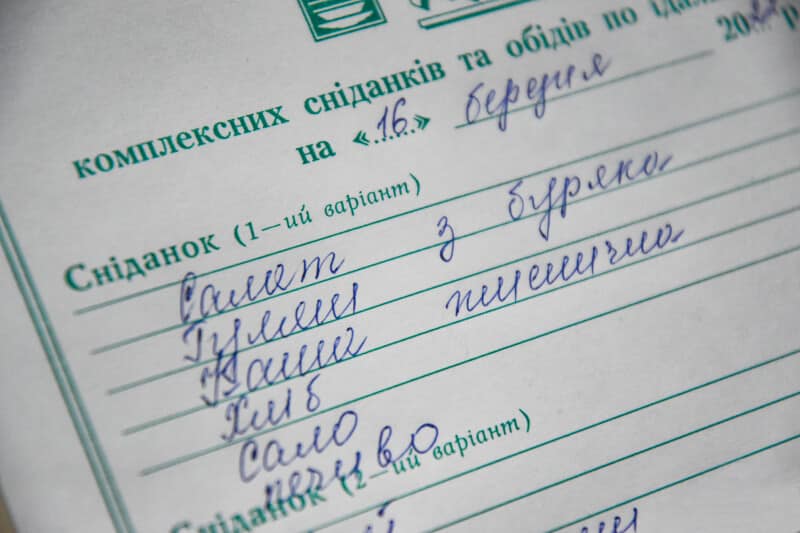 комплексних сніданків та обідів по їдал
на «16» березня 20 р
Сніданок (1-ий варіант)
Салат з буряка
Гуляш
Каша пшенична
Хліб
Сало
печиво
Сніданок (2-ий варіант)